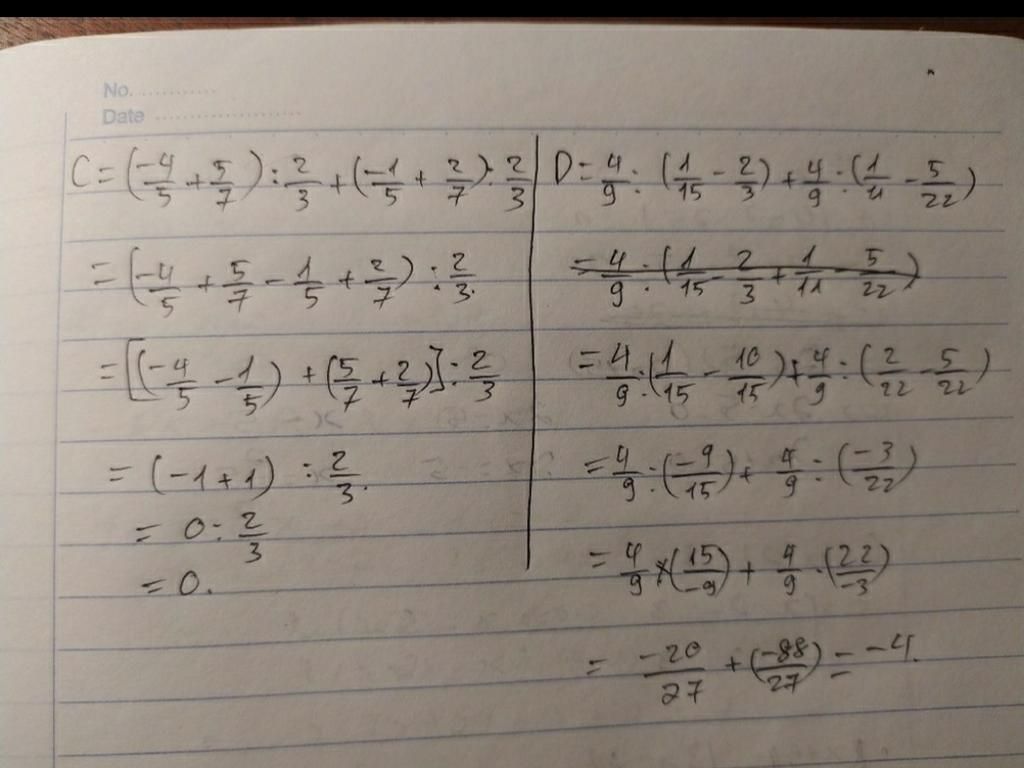 No. ............
Date ......................
C = (-4/5 + 5/7) : 2/3 + (-1/5 + 2/7) : 2/3
= (-4/5 + 5/7 - 1/5 + 2/7) : 2/3.
= [(-4/5 - 1/5) + (5/7 + 2/7)] : 2/3
= (-1+1) : 2/3.
= 0 : 2/3
= 0.
D = 4/9 : (1/15 - 2/3) + 4/9 : (1/11 - 5/22)
= 4/9 : (1/15 - 2/3 + 1/11 - 5/22)
= 4/9 : (1/15 - 10/15) + 4/9 : (2/22 - 5/22)
= 4/9 : (-9/15) + 4/9 : (-3/22)
= 4/9 × (15/-9) + 4/9 · (22/-3)
= -20/27 + (-88/27) = -4.